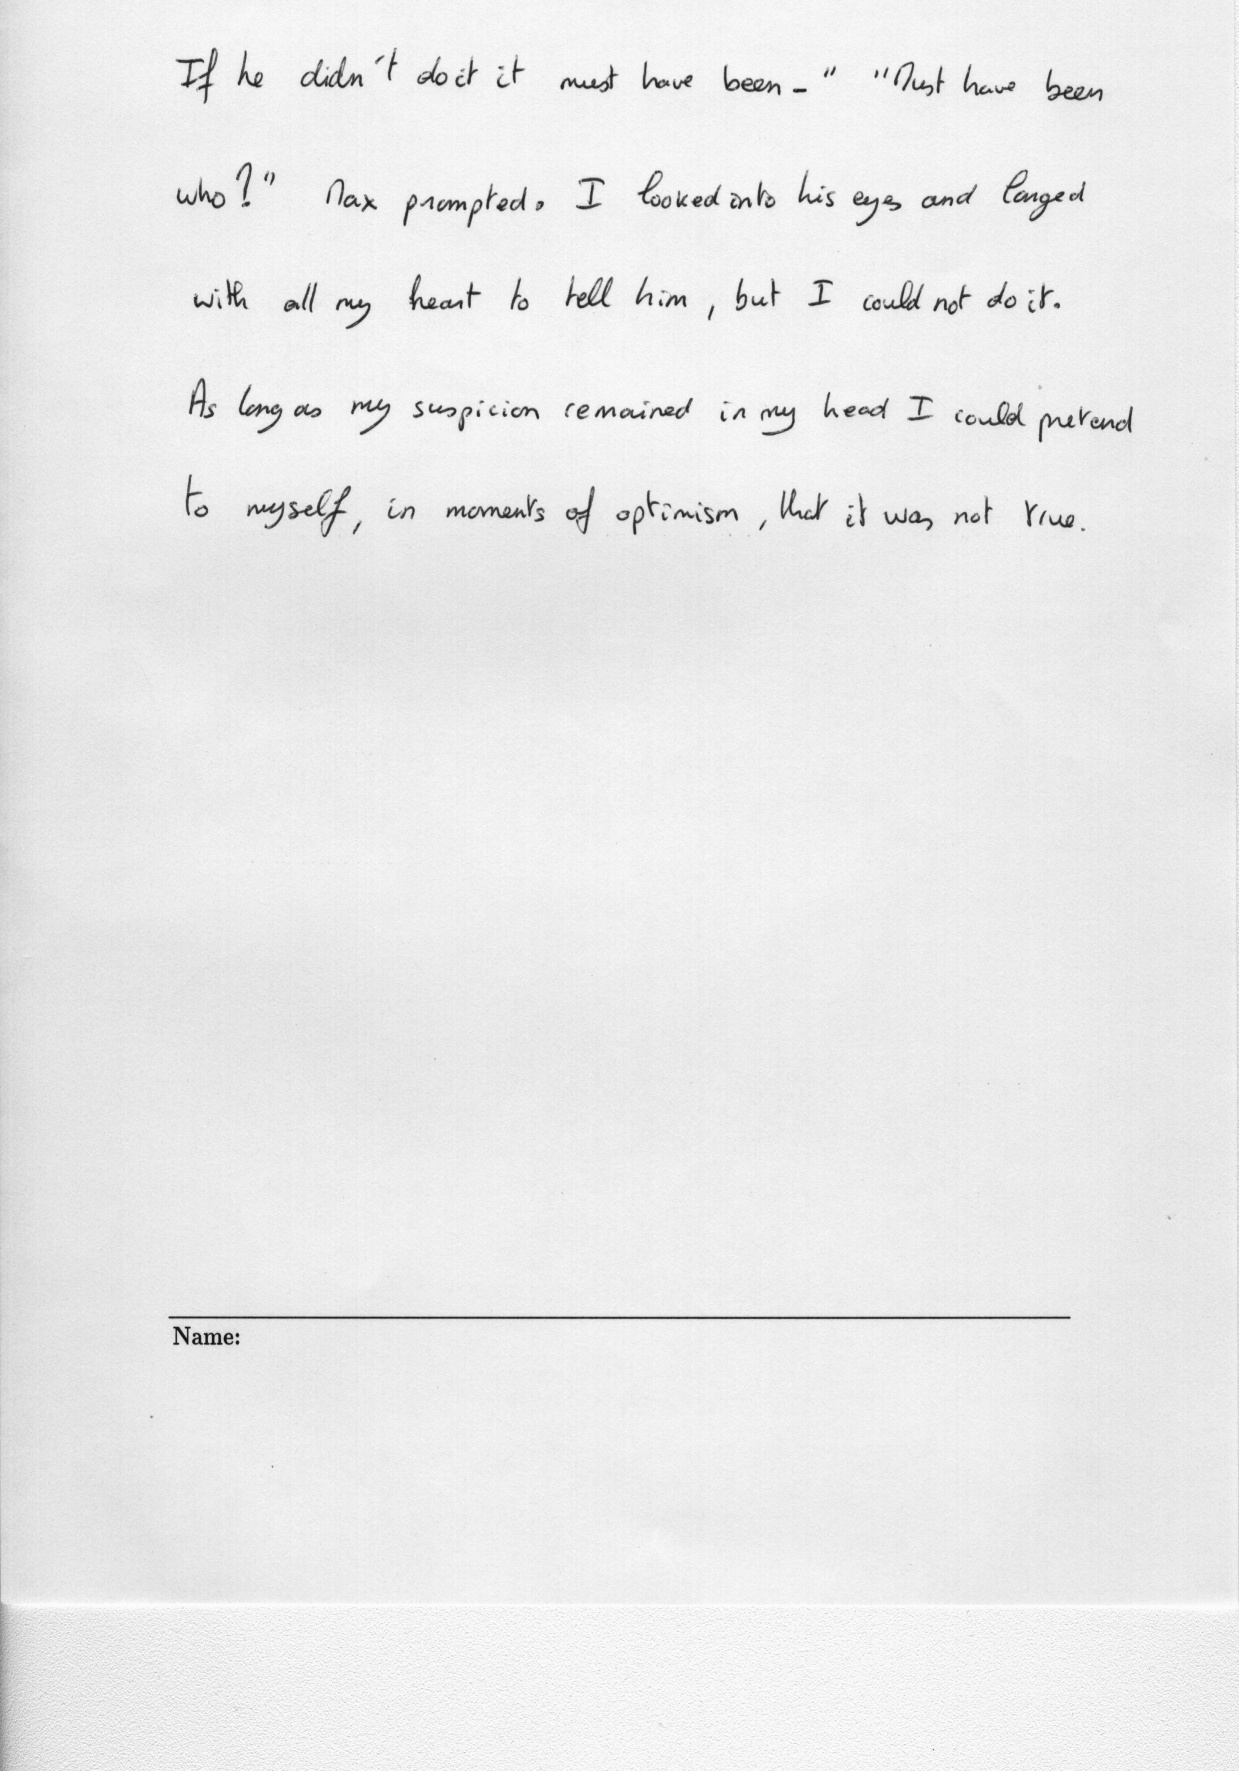 If he didn't do it it must have been - " "Must have been
who?" Max prompted. I looked into his eyes and longed
with all my heart to tell him, but I could not do it.
As long as my suspicion remained in my head I could pretend
to myself, in moments of optimism, that it was not true.
Name: